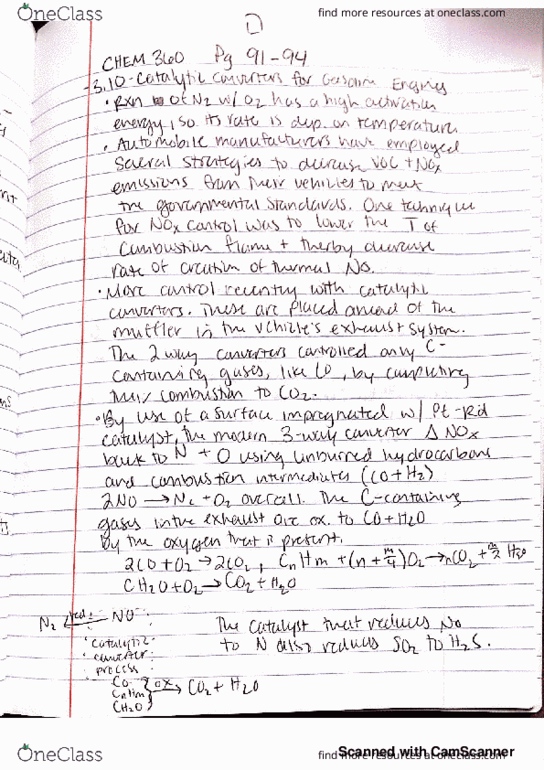 OneClass
find more resources at oneclass.com
D
CHEM 360 Pg 91-94
3.10-Catalytic converters for Gasoline Engines
• Rxn of N2 w/ O2 has a high activation
energy, so its rate is dep. on temperature
• Automobile manufacturers have employed
several strategies to decrease VOC + NOx
emissions from their vehicles to meet
the governmental standards. One technique
for NOx control was to lower the T of
combustion flame + therby decrease
rate of creation of thermal NO.
• More control recently with catalytic
converters. These are placed ahead of the
muffler in the vehicle's exhaust system.
The 2 way converters controlled only C-
containing gases, like CO, by completing
their combustion to CO2.
• By use of a surface impregnated w/ Pt-Rd
catalyst, the modern 3-way converter Δ NOx
back to N + O using unburned hydrocarbons
and combustion intermediates (CO+H2)
2NO → N2 + O2 overall. The C-containing
gases in the exhaust are ox. to CO+H2O
by the oxygen that is present.
2CO+O2→2CO2, CnHm +(n+m/4)O2→nCO2+m/2 H2O
CH2O+O2→CO2+H2O
N2 ←red. NO
The catalyst that reduces NO
to N also reduces SO2 to H2S.
catalytic
converter
process
CO
CnHm
CH2O
ox→ CO2 + H2O
Scanned with CamScanner
OneClass
find more resources at oneclass.com